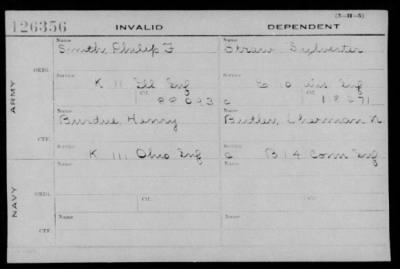 (3-11-5)
126356 INVALID DEPENDENT
Name Name
Smith Philip F Straw Sylvester
ARMY
ORIG. Service Service
K 11 Ill Inf E 10 Inf
Ctf. Ctf.
c
Name Name
Burdue, Henry Butler, Sherman N
CTF. Service Service
K 111 Ohio Inf c B 14 Conn Inf
NAVY
Name Name
ORIG.
Ctf. Ctf.
Name Name
CTF.